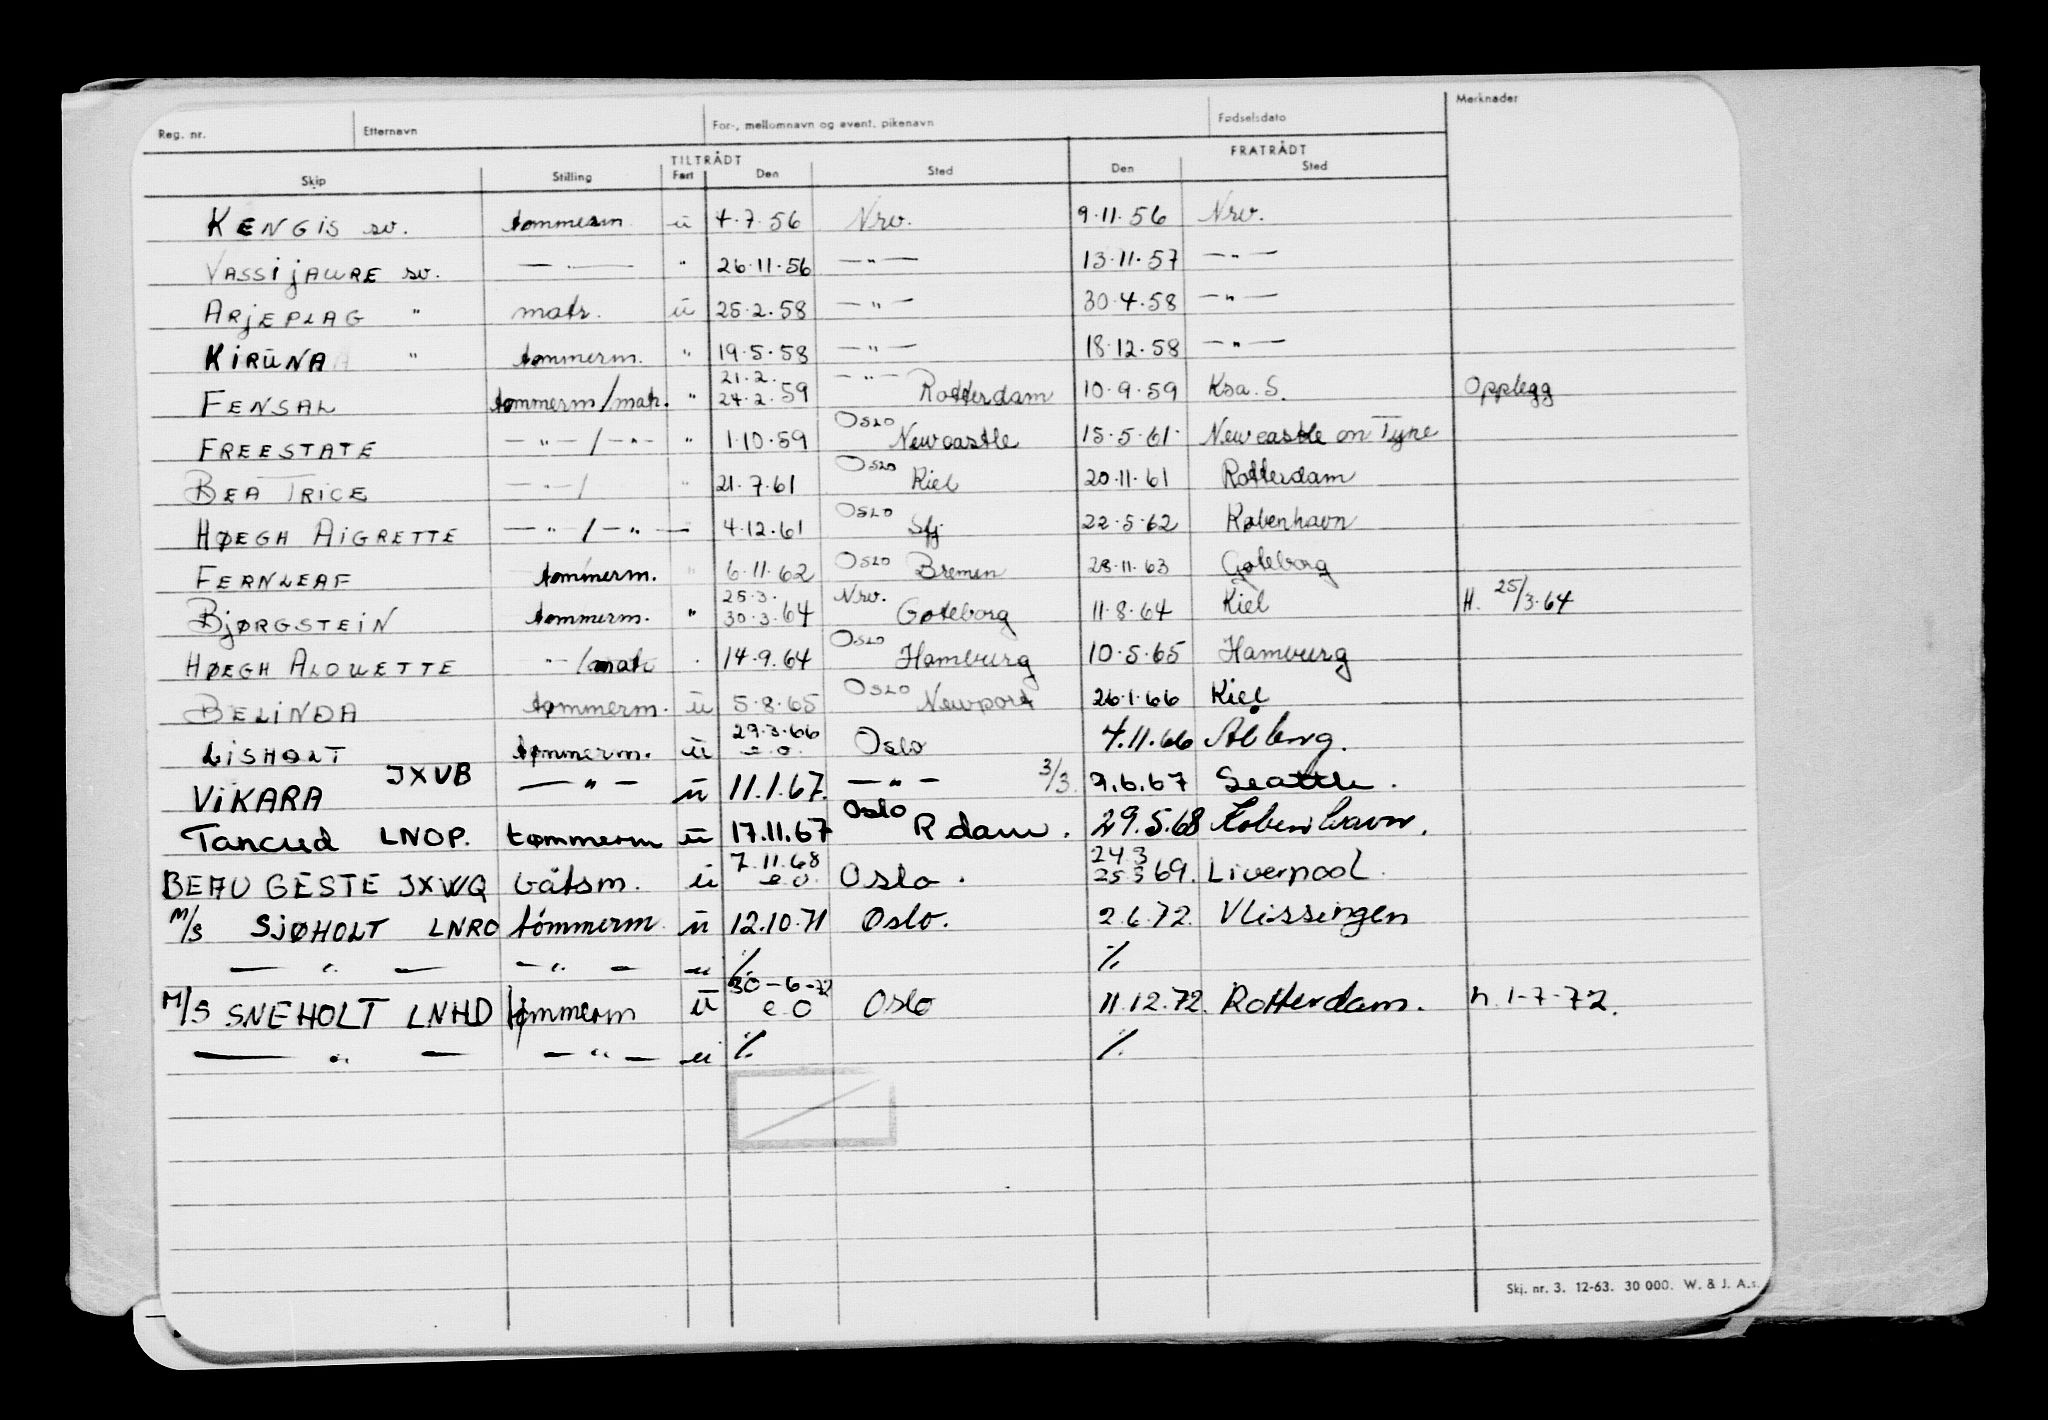 Reg. nr. Etternavn For-, mellomnavn og event. pikenavn Fødselsdato Merknader
TILTRÅDT FRATRÅDT
Skip Stilling Fart Den Sted Den Sted
KENGIS sv. tømmerm. ü 4.7.56 Nrv. 9.11.56 Nrv.
VASSIJAURE sv. — — " 26.11.56 — " — 13.11.57 — " —
ARJEPLAG " matr. ü 25.2.58 — " — 30.4.58 — " —
KIRUNA " tømmerm. " 19.5.58 — " — 18.12.58 — " —
21.2. — " —
FENSAL tømmerm/matr. " 24.2.59 Rotterdam 10.9.59 Ksa. S. Opplegg
Oslo
FREESTATE — " — / — " — " 1.10.59 Newcastle 15.5.61 Newcastle on Tyne
Oslo
BEATRICE — " — / " 21.7.61 Kiel 20.11.61 Rotterdam
Oslo
HØEGH AIGRETTE — " — / — " — 4.12.61 Sfj. 22.5.62 København
FERNLEAF tømmerm. " 6.11.62 Oslo Bremen 28.11.63 Gøteborg
25.3. Nrv.
BJØRGSTEIN tømmerm. " 30.3.64 Gøteborg 11.8.64 Kiel H. 25/3.64
Oslo
HØEGH ALOUETTE " — /matr . 14.9.64 Hamburg 10.5.65 Hamburg
BELINDA tømmerm. ü 5.8.65 Oslo Newport 26.1.66 Kiel
29.3.66
LISHOLT tømmerm. ü e.o. Oslo 4.11.66 Ålborg.
VIKARA JXVB — " — ü 11.1.67. — " — 3/3. 7.6.67 Seattle.
Oslo
Tancred LNOP. tømmerm ü 17.11.67 Rdam. 29.5.68 København.
7.11.68 24 3
BEAU GESTE JXWQ båtsm. ü e.o. Oslo. 25 3 69. Liverpool.
M/S SJØHOLT LNRO tømmerm. ü 12.10.71 Oslo. 2.6.72. Vlissingen
— " — — " — u ./. ./.
30-6-72
M/S SNEHOLT LNHD tømmerm ü e.o Oslo 11.12.72. Rotterdam. h. 1-7-72.
— " — — " — u ./. ./.
Skj. nr. 3. 12-63. 30 000. W. & J. A.s.